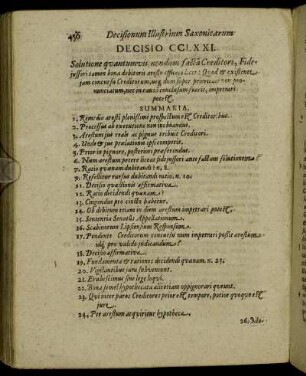 456 Decisionum Illustrium Saxonicarum
DECISIO CCLXXI.
Solutione quantumvis nondum factâ Creditori, Fide-
jussori tamen bona debitoris aresto afficere licet: Quod & existente
jam concursu Creditorum, nec dum super prioritate
nunciatum, nec in causa conclusum fuerit, impetrari
potest.
SUMMARIA.
1. Remedio aresti plenissimè prospectum est Creditoribus.
2. Processus ab executione non inchoandus.
3. Arestum jus reale ac pignus tribuit Creditori.
4. Unde & jus praelationis ipsi competit.
5. Prior in pignore, posteriori praeferendus.
6. Num arestum petere liceat fidejussori ante factam solutionem?
7. Ratio quaedam dubitandi n. 8.
9. Refellitur rursus dubitandi ratio, n. 10.
11. Decisio quaestionis affirmativa.
12. Ratio decidendi quaedam.
13. Cingendus pro cincto habetur.
14. Ob debitum etiam in diem arestum impetrari potest.
15. Sententia Senatus Appellationum.
16. Scabinorum Lipsensium Responsum.
17. Pendente Creditorum concursu num impetrari possit arestum
id, pro valido judicandum?
18. Decisio affirmativa.
19. Fundamenta & rationes decidendi quaedam. n. 23.
20. Vigilantibus jura subveniunt.
21. Ex distinctus sine lege loqui.
22. Bona semel hypothecata alii etiam oppignorari queunt.
23. Qui inter pares Creditores prior est tempore, potior quoque est
jure.
24. Per arestum acquiritur hypotheca.